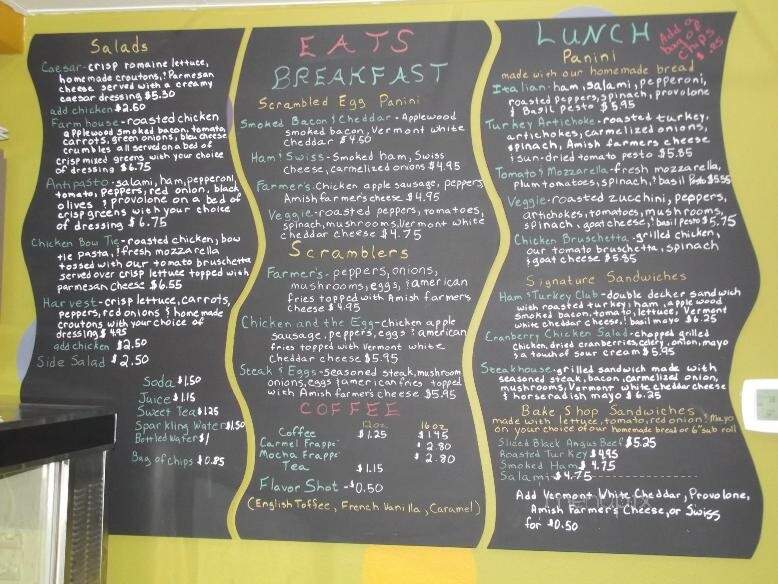 Salads
Caesar-crisp romaine lettuce,
homemade croutons, & Parmesan
cheese served with a creamy
caesar dressing $5.50
add chicken $2.50
Farmhouse-roasted chicken
applewood smoked bacon, tomato,
carrots, green onions, bleu cheese
crumbles all served on a bed of
crisp mixed greens with your choice
of dressing $6.75
Antipasto-salami, ham, pepperoni,
tomato, peppers, red onion, black
olives & provolone on a bed of
crisp greens with your choice
of dressing $6.75
Chicken Bow Tie-roasted chicken, bow
tie pasta, & fresh mozzarella
tossed with our tomato bruschetta
served over crisp lettuce topped with
parmesan cheese $6.55
Harvest-crisp lettuce, carrots,
peppers, red onions & homemade
croutons with your choice of
dressing $4.95
add chicken $2.50
Side Salad $2.50
Soda $1.50
Juice $1.15
Sweet Tea $1.25
Sparkling Water $1.50
Bottled Water $1
Bag of Chips $0.85
EATS
BREAKFAST
Scrambled Egg Panini
Smoked Bacon & Cheddar-Applewood
smoked bacon, Vermont white
cheddar $4.50
Ham & Swiss-Smoked ham, Swiss
cheese, carmelized onions $4.95
Farmer's-Chicken apple sausage, peppers,
Amish farmer's cheese $4.95
Veggie-roasted peppers, tomatoes,
spinach, mushrooms, Vermont white
cheddar cheese $4.75
Scramblers
Farmer's-peppers, onions,
mushrooms, eggs, & american
fries topped with Amish farmers
cheese $4.95
Chicken and the Egg-chicken apple
sausage, peppers, eggs & american
fries topped with Vermont white
Cheddar cheese $5.95
Steak & Eggs-seasoned steak, mushroom
onions, eggs & american fries topped
with Amish farmer's cheese $5.95
COFFEE
12oz. 16oz
Coffee $1.25 $1.45
Carmel Frappe $2.80
Mocha Frappe $2.80
Tea $1.15
Flavor Shot-$0.50
(English Toffee, French Vanilla, Caramel)
LUNCH
Add a
bag of
chips
$.85
Panini
made with our homemade bread
Italian-ham, salami, pepperoni,
roasted peppers, spinach, provolone
& Basil pesto $5.95
Turkey Artichoke-roasted turkey,
artichokes, carmelized onions,
spinach, Amish farmers cheese
& sun-dried tomato pesto $5.85
Tomato & Mozzarella-fresh mozzarella,
plum tomatoes, spinach, & basil pesto $5.55
Veggie-roasted zucchini, peppers,
artichokes, tomatoes, mushrooms,
spinach, goat cheese, & basil pesto $5.75
Chicken Bruschetta-grilled chicken,
our tomato bruschetta, spinach
& goat cheese $5.85
Signature Sandwiches
Ham & Turkey Club-double decker sandwich
with roasted turkey & ham, apple wood
smoked bacon, tomato, lettuce, Vermont
white cheddar cheese, & basil mayo $6.25
Cranberry Chicken Salad-chopped grilled
chicken dried cranberries, celery, onion, mayo
& a touch of sour cream $5.95
Steakhouse-grilled sandwich made with
seasoned steak, bacon, carmelized onion,
mushrooms, Vermont white cheddar cheese
& horseradish mayo $6.25
Bake Shop Sandwiches
made with lettuce, tomato, red onion & Mayo
on your choice of our homemade bread or 6" sub roll
Sliced Black Angus Beef $5.25
Roasted Turkey $4.95
Smoked Ham $4.75
Salami $4.75
Add Vermont White Cheddar, Provolone,
Amish Farmer's Cheese, or Swiss
for $0.50